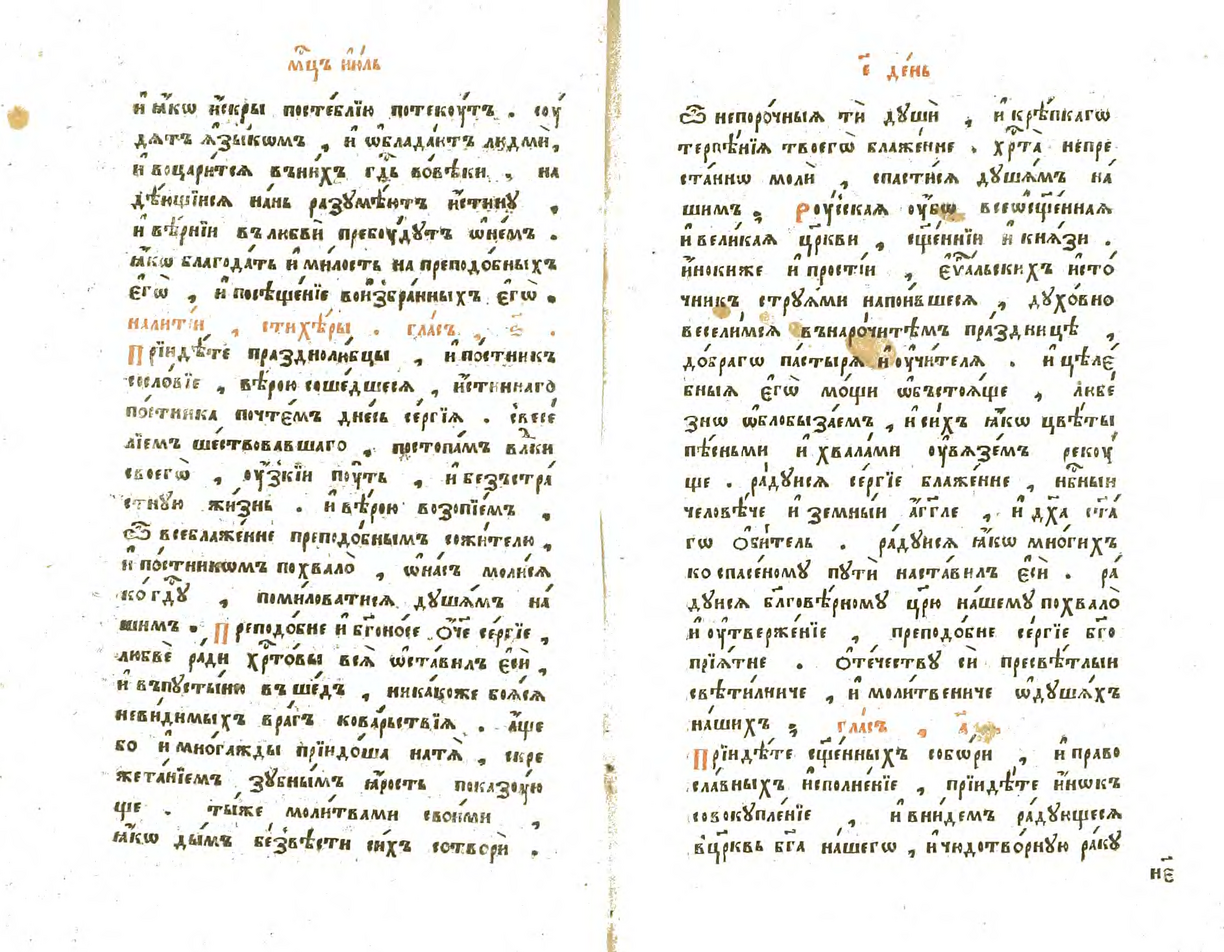 мц҃ъ ию́ль
и҆ ꙗ҆́кѡ и҆́скры постеблїю потекꙋ́тъ . соу́
дѧтъ ѧ҆зы́кѡмъ , и҆ ѡ҆блада́ютъ людмѝ,
и҆ воцари́тсѧ вънихъ гдⷭ҇ь вовѣ́ки , на
дѣ́ющїисѧ на́нь разумѣ́ютъ и҆́стину ,
и҆ вѣ́рнїи въ любвѝ пребоу́дутъ ѡ҆не́мъ .
ꙗ҆́кѡ благода́ть и҆ ми́лость на преподо́бныхъ
є҆гѡ̀ , и҆ посѣще́нїе воизбра́нныхъ є҆гѡ̀ .
налитїи , стихѣ́ры . гла́съ , є҃ .
Прїидѣ́те празднолю́бцы , и҆ по́стникъ
сосло́вїе , вѣ́рою соше́дшеся , и҆́стиннаго
по́стника почте́мъ дне́сь се́ргїѧ . свесе́
лїемъ ше́ствовавшаго , постопа́мъ влⷣки
своегѡ̀ , оу҆́зкїи поу́ть , и҆ безъстра́
стную жи́знь . и҆ вѣ́рою возопїе́мъ ,
Ѿ всеблаже́нне преподо́бнымъ сожи́телю ,
и҆ по́стникѡмъ похвало̀ , ѡ҆на́съ моли́сѧ
ко гдⷭ҇у , поми́ловатисѧ душа́мъ на́
шимъ . Преподо́бне и҆ бг҃оно́се ѻ҆́ч҃е се́ргїе ,
любвѐ ра́ди хрⷭ҇то́вы всѧ̀ ѡ҆ста́вилъ є҆сѝ ,
и҆ въпусты́ню въ ше́дъ , ника́коже боѧ́сѧ
неви́димыхъ вра́гъ кова́рьствїѧ . а҆́ще
бо и҆ мно́гажды прїидо́ша натѧ̀ , скре
жета́нїемъ зу́бнымъ ꙗ҆́рость показоу́ю
ще . ты́же моли́твами свои́ми ,
ꙗ҆́кѡ ды́мъ безвѣ́сти си́хъ сотворѝ .
є҃ де́нь
Ѿ непоро́чныѧ тѝ душѝ , и҆ крѣ́пкагѡ
терпѣ́нїѧ твоегѡ̀ блаже́нне . хрⷭ҇та̀ непре
ста́ннѡ молѝ , спасти́сѧ душа́мъ на́
шимъ ; Роу́сскаѧ оу҆́бѡ всеѡсщ҃е́ннаѧ
и҆ вели́каѧ цр҃кви , сщ҃е́ннїи и҆ кнѧ́зи .
и҆́нокиже и҆ прості́и , є҆ѵⷢ҇льскихъ исто́
чникъ струѧ́ми напои́вшесѧ , духо́вно
весели́мсѧ въ наро́читѣмъ пра́здницѣ ,
до́брагѡ па́стырѧ и҆ оучи́телѧ . и҆ цѣле́
бныѧ є҆гѡ̀ мо́щи ѡ҆бъстоѧ́ще , любе́
знѡ ѡ҆блобыза́емъ , и҆ си́хъ ꙗ҆́кѡ цвѣ́ты
пѣ́сньми и҆ хвала́ми оу҆вѧзе́мъ рекоу́
ще . ра́дуисѧ се́ргїе блаже́нне , нбⷭ҇ныи
человѣ́че и҆ земны́и а҆́гг҃ле , и҆ дх҃а ст҃а́
гѡ ѻ҆би́тель . ра́дуисѧ ꙗ҆́кѡ мно́гихъ
ко спасе́ному путѝ наста́вилъ є҆сѝ . ра́
дуисѧ бл҃говѣ́рному цр҃ю на́шему похвало̀
и҆ оу҆твержє́нїе , преподо́бне се́ргїе бг҃о
прїѧ́тне . ѻ҆те́честву сѝ пресвѣ́тлыи
свѣти́лниче , и҆ моли́твениче ѡ҆душа́хъ
на́шихъ ; гла́съ , а҃ .
Прїидѣ́те сщ҃е́нныхъ собо́ри , и҆ право
сла́вныхъ и҆сполне́нїе , прїидѣ́те и҆́нѡкъ
совокупле́нїе , и҆ вни́демъ ра́дующесѧ
въцр҃квь бг҃а на́шегѡ , и҆ чюдотво́рную ра́ку
не҃